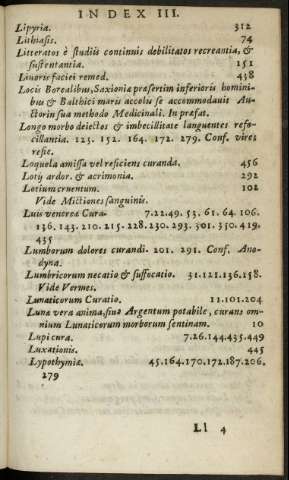 INDEX III.
Lipyria. 312
Lithiasis. 74
Litteratos è studiis continuis debilitatos recreantia, &
sustentantia. 151
Livoris faciei remed. 438
Locis Borealibus, Saxoniæ præsertim inferioris homini-
bus & Balthici maris accolis se accommodavit Au-
ctor in sua methodo Medicinali. In præfat.
Longo morbo deiectos & imbecillitate languentes refo-
cillantia. 123. 152. 164. 172. 279. Conf. vires
refic.
Loquela amissa vel reficiens curanda. 456
Lotij ardor. & acrimonia. 292
Lotium cruentum. 102
Vide Mictiones sanguinis.
Luis venereæ Cura. 7.22.49. 53. 61. 64. 106.
136. 143. 210. 215. 228. 230. 293. 301. 350. 419.
435
Lumborum dolores curandi. 201. 291. Conf. Ano-
dyna.
Lumbricorum necatio & suffocatio. 31.121.136.158.
Vide Vermes.
Lunaticorum Curatio. 11.101.204
Lunæ vera anima, sive Argentum potabile, curans om-
nium Lunaticorum morborum sentinam. 10
Lupi cura. 7.26.144.435.449
Luxationis. 445
Lypothymiæ. 45.164.170.172.187.206.
279
Ll 4